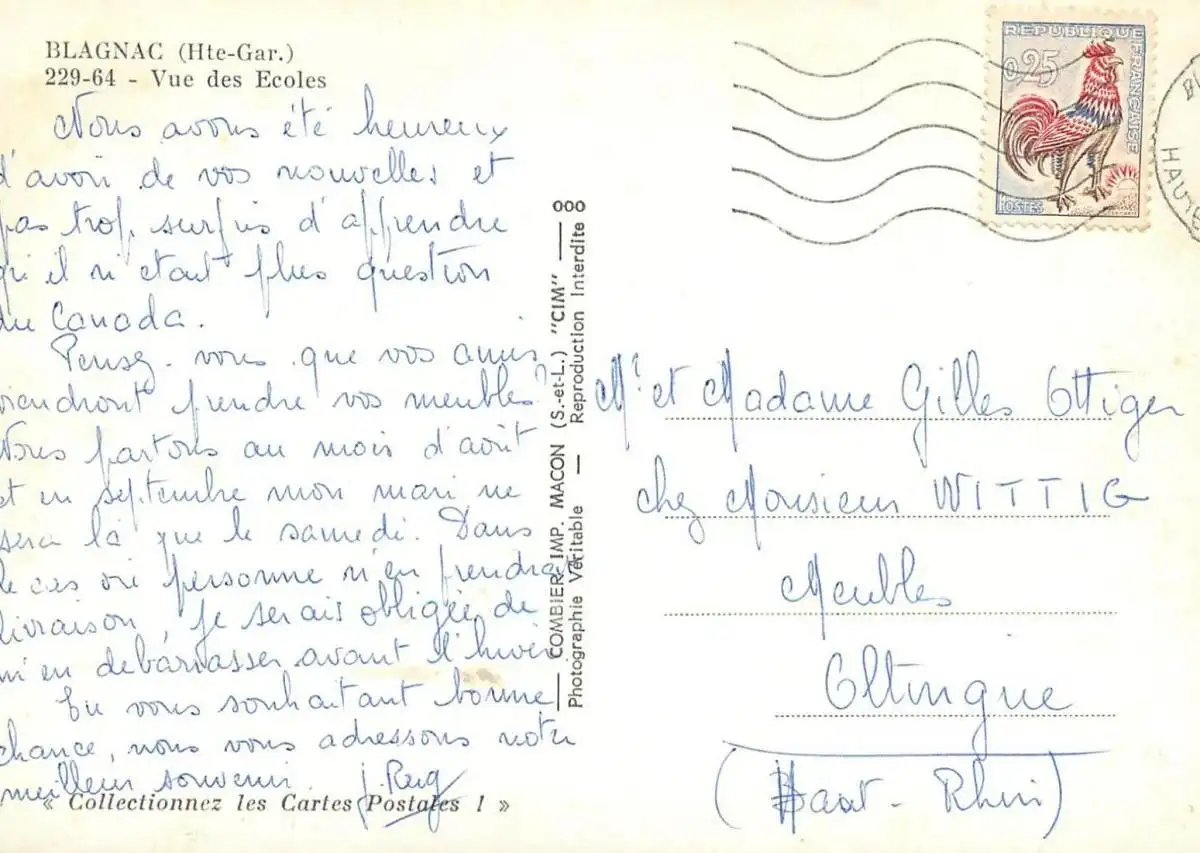 BLAGNAC (Hte-Gar.)
229-64 - Vue des Ecoles
Nous avons été heureux
d'avoir de vos nouvelles et
pas trop surpris d'apprendre
qu'il n'était plus question
du Canada.
Pensez-vous que vos amis
viendront prendre vos meubles?
Nous partons au mois d'août
et en septembre mon mari ne
sera là que le samedi. Dans
le cas où personne n'en prendrait
livraison, je serais obligée de
m'en débarrasser avant l'hiver
En vous souhaitant bonne
chance, nous vous adressons notre
meilleur souvenir. J. Reig
« Collectionnez les Cartes Postales ! »
COMBIER IMP. MACON (S.-et-L.) "CIM" ooo
Photographie Véritable — Reproduction Interdite
REPUBLIQUE FRANÇAISE
0,25
POSTES
HAUTE
Mr et Madame Gilles Ottiger
chez Monsieur WITTIG
Meubles
Oltingue
(Haut-Rhin)